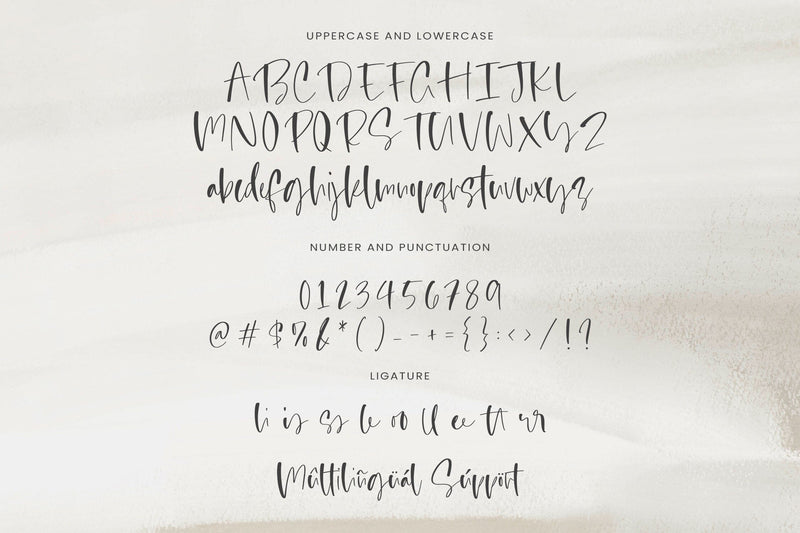 UPPERCASE AND LOWERCASE
ABCDEFGHIJKL
MNOPQRSTUVWXYZ
abcdefghijklmnopqrstuvwxyz
NUMBER AND PUNCTUATION
0123456789
@#$%&*()_-+={}:<>/!?
LIGATURE
li is ss le oo ll ee tt rr
Múltilíñgüál Súppört